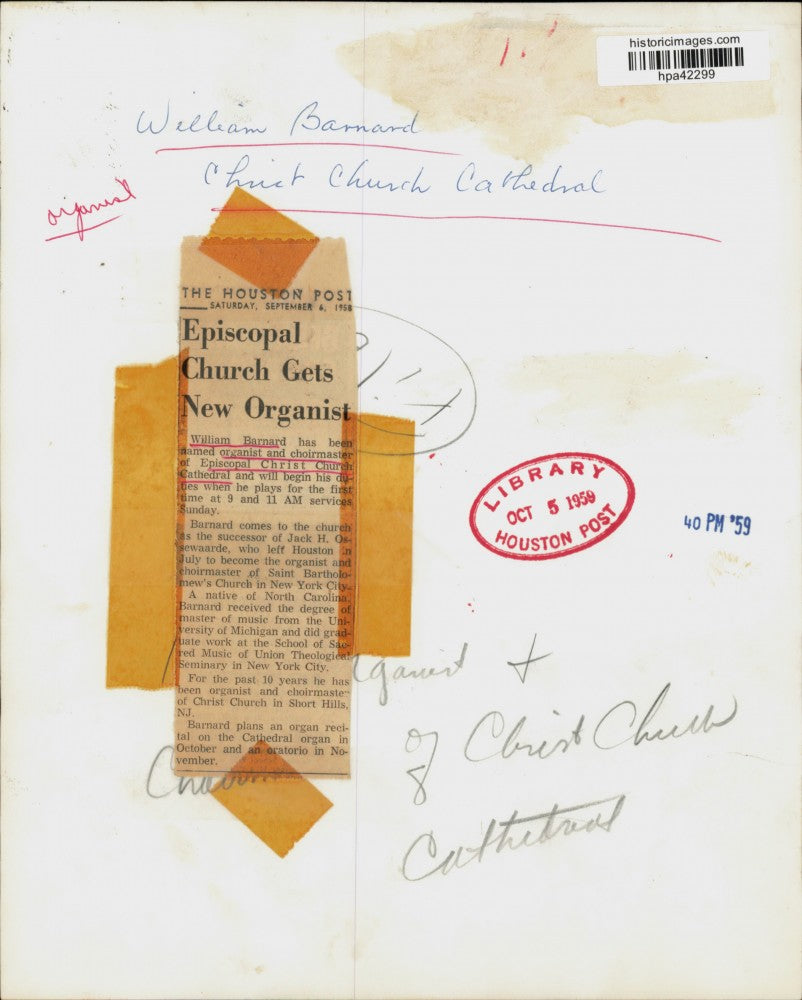 historicimages.com
hpa42299
William Barnard
Christ Church Cathedral
organist
THE HOUSTON POST
SATURDAY, SEPTEMBER 6, 1958
Episcopal
Church Gets
New Organist
William Barnard has been
named organist and choirmaster
of Episcopal Christ Church
Cathedral and will begin his du-
ties when he plays for the first
time at 9 and 11 AM services
Sunday.
Barnard comes to the church
as the successor of Jack H. Os-
sewaarde, who left Houston in
July to become the organist and
choirmaster of Saint Bartholo-
mew's Church in New York City.
A native of North Carolina,
Barnard received the degree of
master of music from the Uni-
versity of Michigan and did grad-
uate work at the School of Sac-
red Music of Union Theological
Seminary in New York City.
For the past 10 years he has
been organist and choirmaster
of Christ Church in Short Hills,
NJ.
Barnard plans an organ reci-
tal on the Cathedral organ in
October and an oratorio in No-
vember.
LIBRARY
OCT 5 1959
HOUSTON POST
40 PM '59
rganist +
of Christ Church
Cathedral